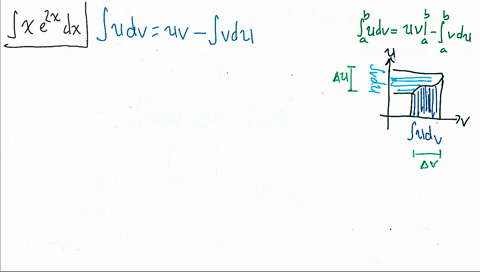 ∫x e^{2x} dx   ∫u dv = uv − ∫v du
∫_a^b u dv = uv|_a^b − ∫_a^b v du
u
Δu   ∫v du
v
∫u dv
Δv